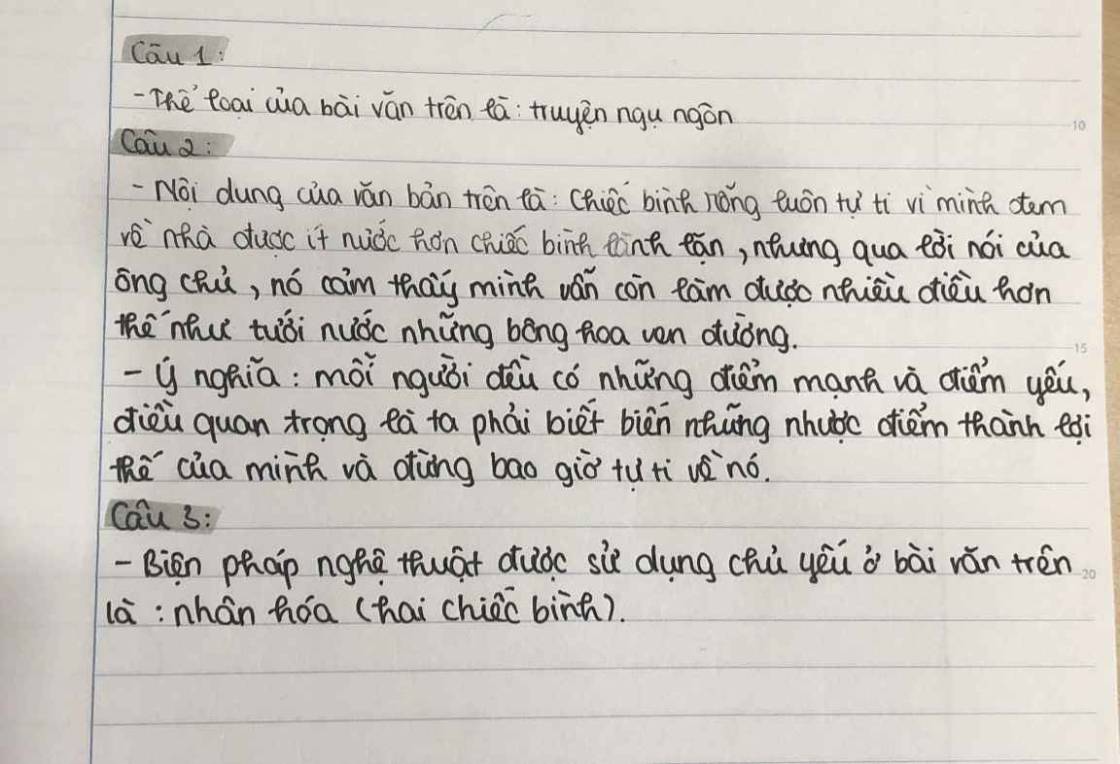 Câu 1:
- Thể loại của bài văn trên là: truyện ngụ ngôn
10
Câu 2:
- Nội dung của văn bản trên là: Chiếc bình rỗng luôn tự ti vì mình đem
về nhà được ít nước hơn chiếc bình lành lặn, nhưng qua lời nói của
ông chủ, nó cảm thấy mình vẫn còn làm được nhiều điều hơn
thế như tưới nước những bông hoa ven đường.
15
- Ý nghĩa: mỗi người đều có những điểm mạnh và điểm yếu,
điều quan trọng là ta phải biết biến những nhược điểm thành lợi
thế của mình và đừng bao giờ tự ti về nó.
Câu 3:
- Biện pháp nghệ thuật được sử dụng chủ yếu ở bài văn trên
20
là: nhân hóa (hai chiếc bình).